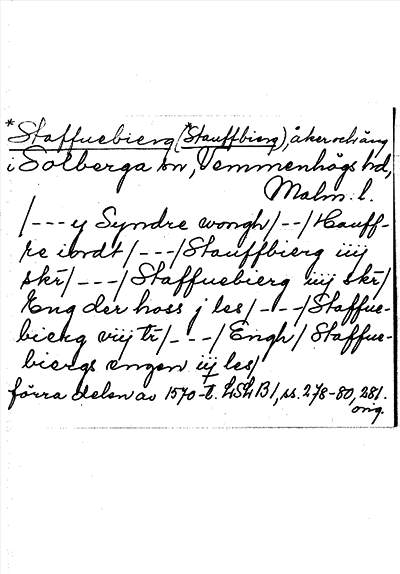 *Staffuebierg (*Stauffbierg), åker och äng
i Solberga sn, Vemmenhögs hd,
Malm. l.
/---y Syndre wongh/--/Hauff-
re iordt/---/Stauffbierg iiij
skr̄/---/Staffuebierg iiij skr̄/
Eng der hoss j les/---/Staffue-
bierg viij tr̄/---/Engh/Staffue-
biergs engen iij les/
förra delen av 1570-t. LSLB1, ss. 278-80, 281.
orig.